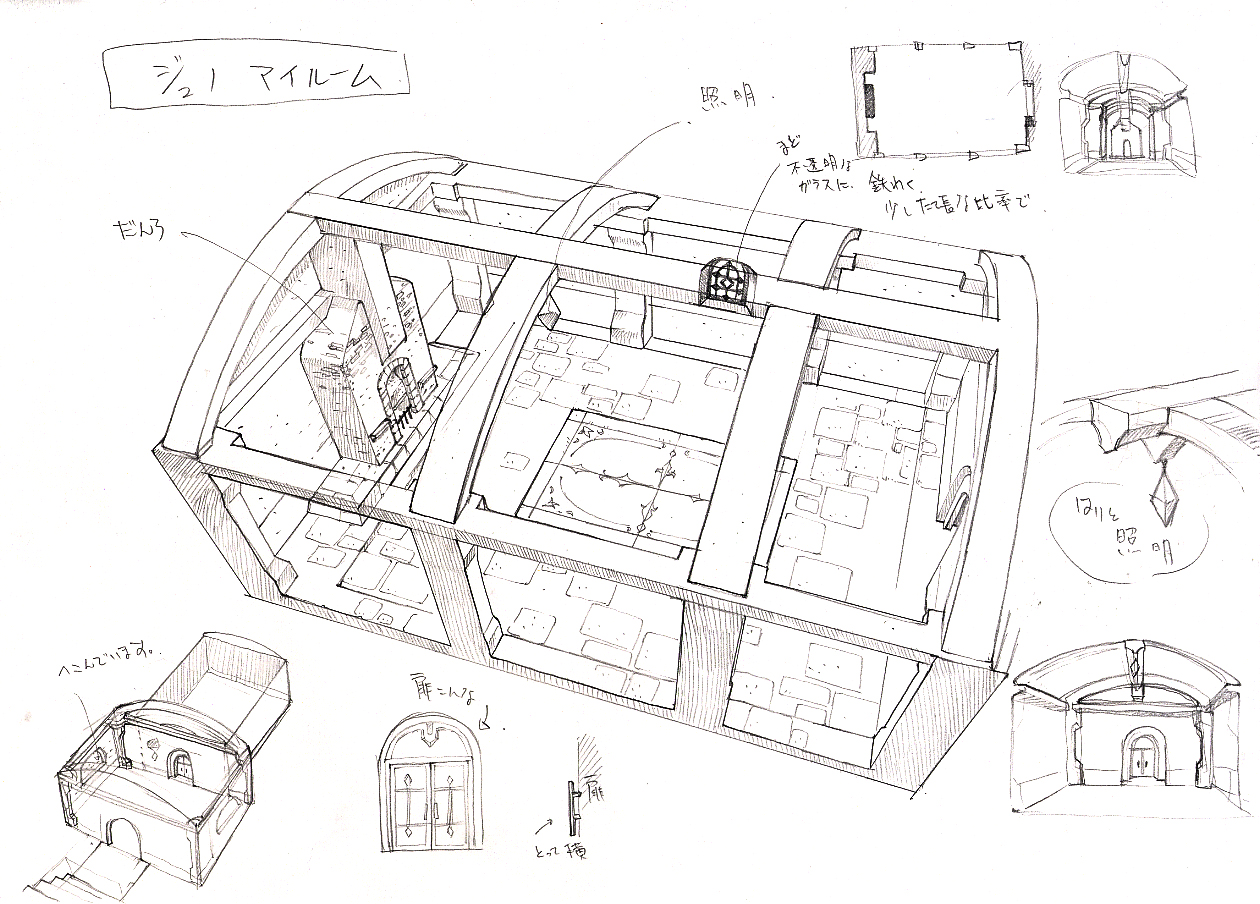 ジュノ マイルーム
照明.
まど
不透明な
ガラスに. 鉄わく
少したて長な比率で.
だんろ
はりと
照明
へこんでいます。
扉こんな
扉
とって横